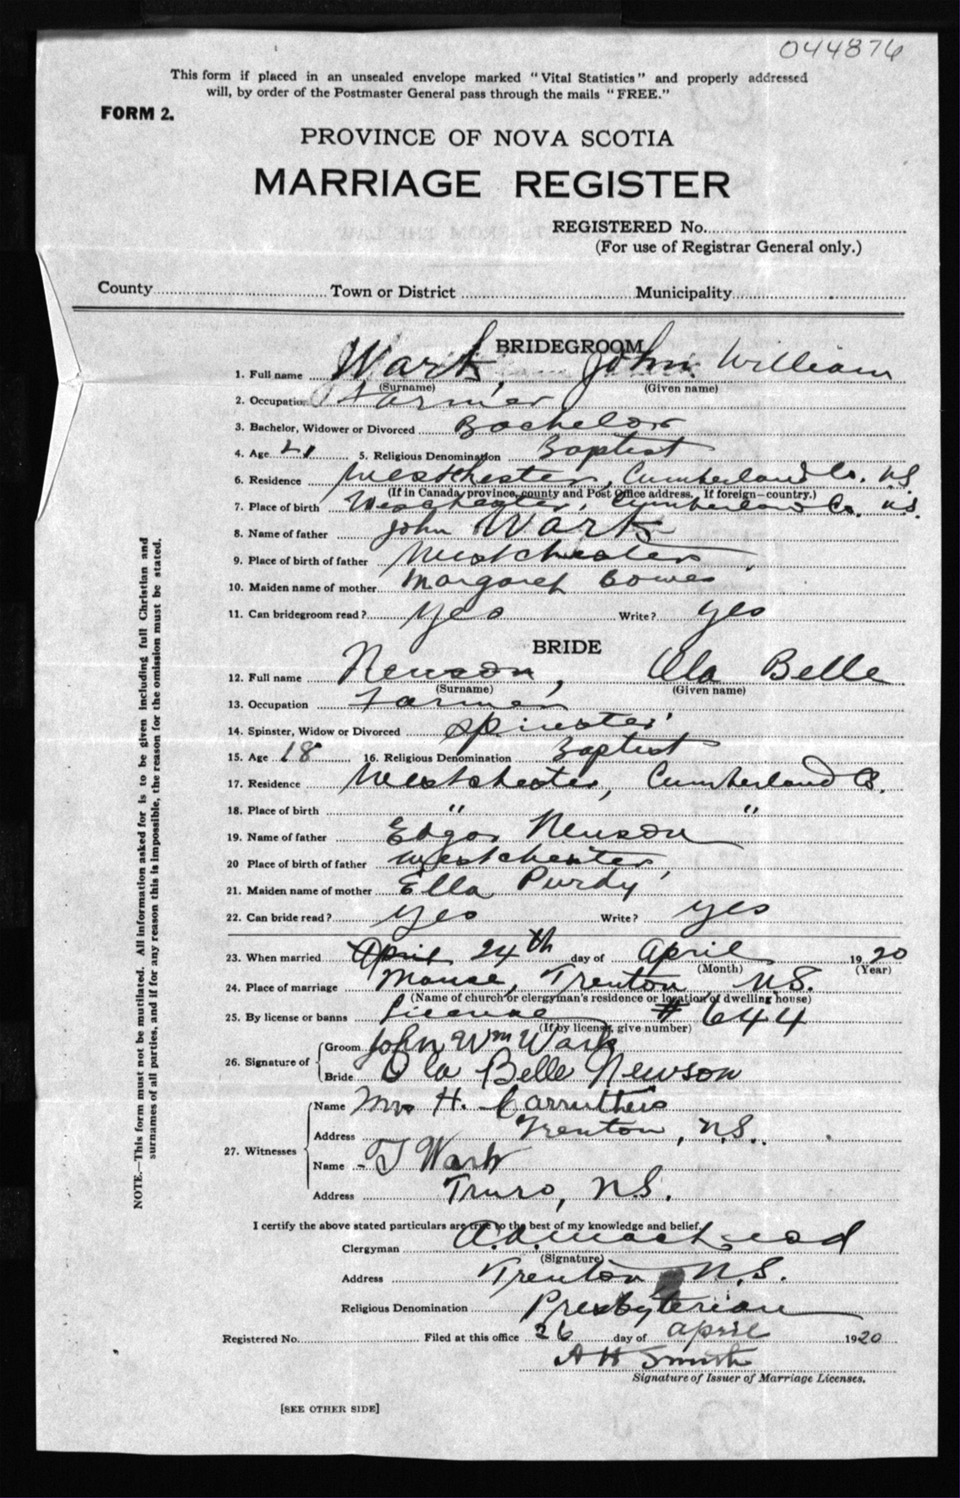 044876
This form if placed in an unsealed envelope marked "Vital Statistics" and properly addressed
will, by order of the Postmaster General pass through the mails "FREE."
FORM 2.
PROVINCE OF NOVA SCOTIA
MARRIAGE REGISTER
REGISTERED No.
(For use of Registrar General only.)
County Town or District Municipality
BRIDEGROOM
1. Full name Wark, John William
(Surname) (Given name)
2. Occupation Farmer
3. Bachelor, Widower or Divorced Bachelor
4. Age 21 5. Religious Denomination Baptist
6. Residence Westchester, Cumberland Co. N.S.
(If in Canada, province, county and Post Office address, If foreign—country.)
7. Place of birth Weschester, Cumberland Co. N.S.
8. Name of father John Wark
9. Place of birth of father Westchester
10. Maiden name of mother Margaret Bowes
11. Can bridegroom read? yes Write? yes
BRIDE
12. Full name Newson, Ola Belle
(Surname) (Given name)
13. Occupation Farmer
14. Spinster, Widow or Divorced Spinster
15. Age 18 16. Religious Denomination Baptist
17. Residence Westchester, Cumberland Co.
18. Place of birth " "
19. Name of father Edgar Newson
20 Place of birth of father Westchester
21. Maiden name of mother Ella Purdy
22. Can bride read? yes Write? yes
23. When married April 24th day of April 1920
(Month) (Year)
24. Place of marriage Manse, Trenton N.S.
(Name of church or clergyman's residence or location of dwelling house)
25. By license or banns License # 644
(If by license, give number)
26. Signature of Groom John Wm Wark
Bride Ola Belle Newson
27. Witnesses Name Mrs H. Carruthers
Address Trenton, N.S.
Name T Wark
Address Truro, N.S.
I certify the above stated particulars are true to the best of my knowledge and belief.
Clergyman
(Signature)
Address Trenton, N.S.
Religious Denomination Presbyterian
Registered No. Filed at this office 26 day of April 1920
A H Smith
Signature of Issuer of Marriage Licenses.
[SEE OTHER SIDE]
NOTE.—This form must not be mutilated. All information asked for is to be given including full Christian and
surnames of all parties, and if for any reason this is impossible, the reason for the omission must be stated.